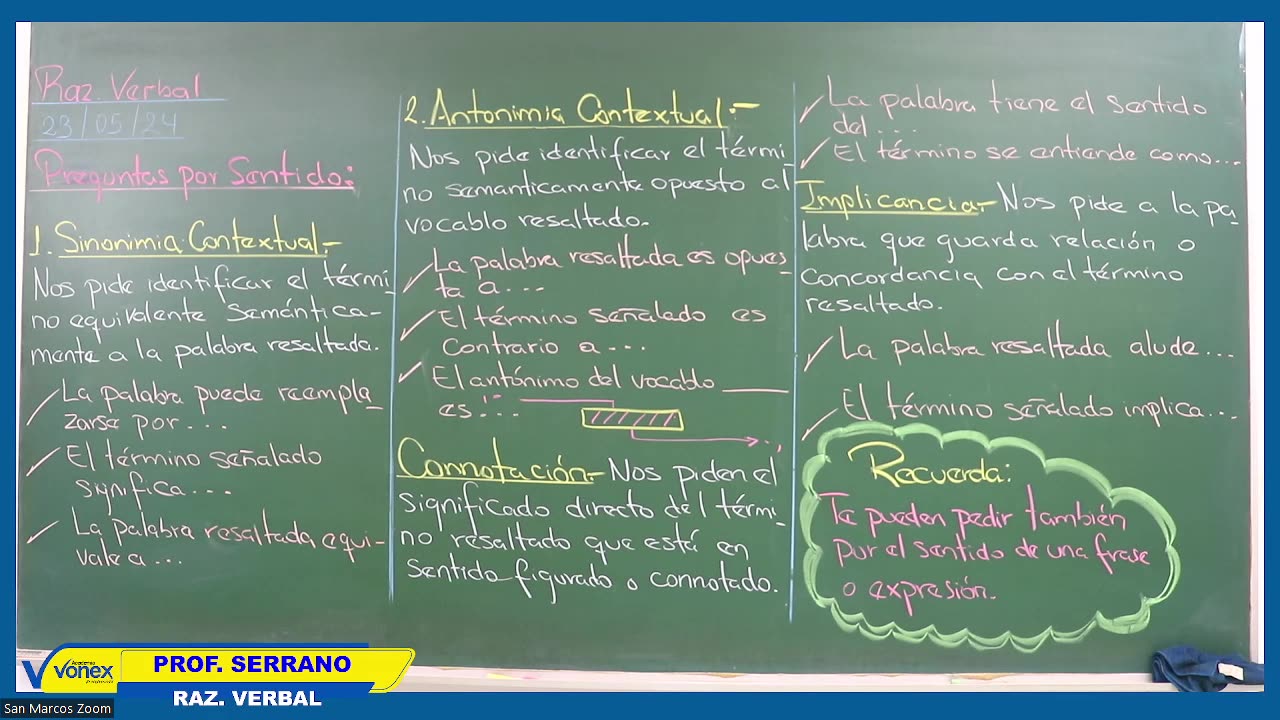 Raz. Verbal
23/05/24
Preguntas por Sentido:
1. Sinonimia Contextual.-
Nos pide identificar el térmi-
no equivalente semántica-
mente a la palabra resaltada.
La palabra puede reempla-
zarse por...
El término señalado
significa...
La palabra resaltada equi-
vale a...
2. Antonimia Contextual:-
Nos pide identificar el térmi-
no semanticamente opuesto al
vocablo resaltado.
La palabra resaltada es opues-
ta a...
El término señalado es
contrario a...
El antónimo del vocablo ____
es...
Connotación.- Nos piden el
significado directo del térmi-
no resaltado que está en
sentido figurado o connotado.
La palabra tiene el sentido
del...
El término se entiende como...
Implicancia.- Nos pide a la pa-
labra que guarda relación o
concordancia con el término
resaltado.
La palabra resaltada alude...
El término señalado implica...
Recuerda:
Te pueden pedir también
por el sentido de una frase
o expresión.
Academia
vonex
PROF. SERRANO
RAZ. VERBAL
San Marcos Zoom